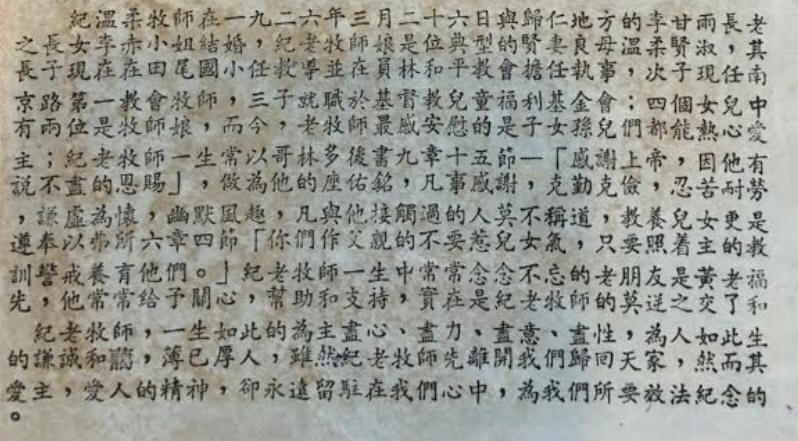 紀溫柔牧師在一九二六年三月二十六日與歸仁地方的李甘雨長老
之長女李赤小姐結婚，紀老牧師娘是位典型的賢妻良母溫柔賢淑，其
長子現在在田尾國小任教導並在員林和平教會擔任執事，次子現任南
京路第一教會牧師，三子就職於基督教兒童福利基金會；四個女兒中
有兩位是牧師娘，而今，老牧師最感安慰的是子女孫兒們都能熱心愛
主；紀老牧師一生常以哥林多後書九章十五節—「感謝上帝，因他有
說不盡的恩賜」，做為他的座佑銘，凡事感謝，克勤克儉，忍苦耐勞
，謙虛為懷，幽默風趣，凡與他接觸過的人莫不稱道，教養兒女更是
遵奉以弗所六章四節「你們作父親的不要惹兒女氣，只要照着主的教
訓警戒養育他們。」紀老牧師一生中常常念念不忘的老朋友是黃老福
先，他常常給予關心，幫助和支持，實在是紀老牧師的莫逆之交了和
紀老牧師，一生如此的為主盡心、盡力、盡意、盡性，為人如此生
的謙誠和藹，薄已厚人，雖然紀老牧師先離開我們歸回天家，然而其
愛主，愛人的精神，卻永遠留駐在我們心中，為我們所要效法紀念的
。